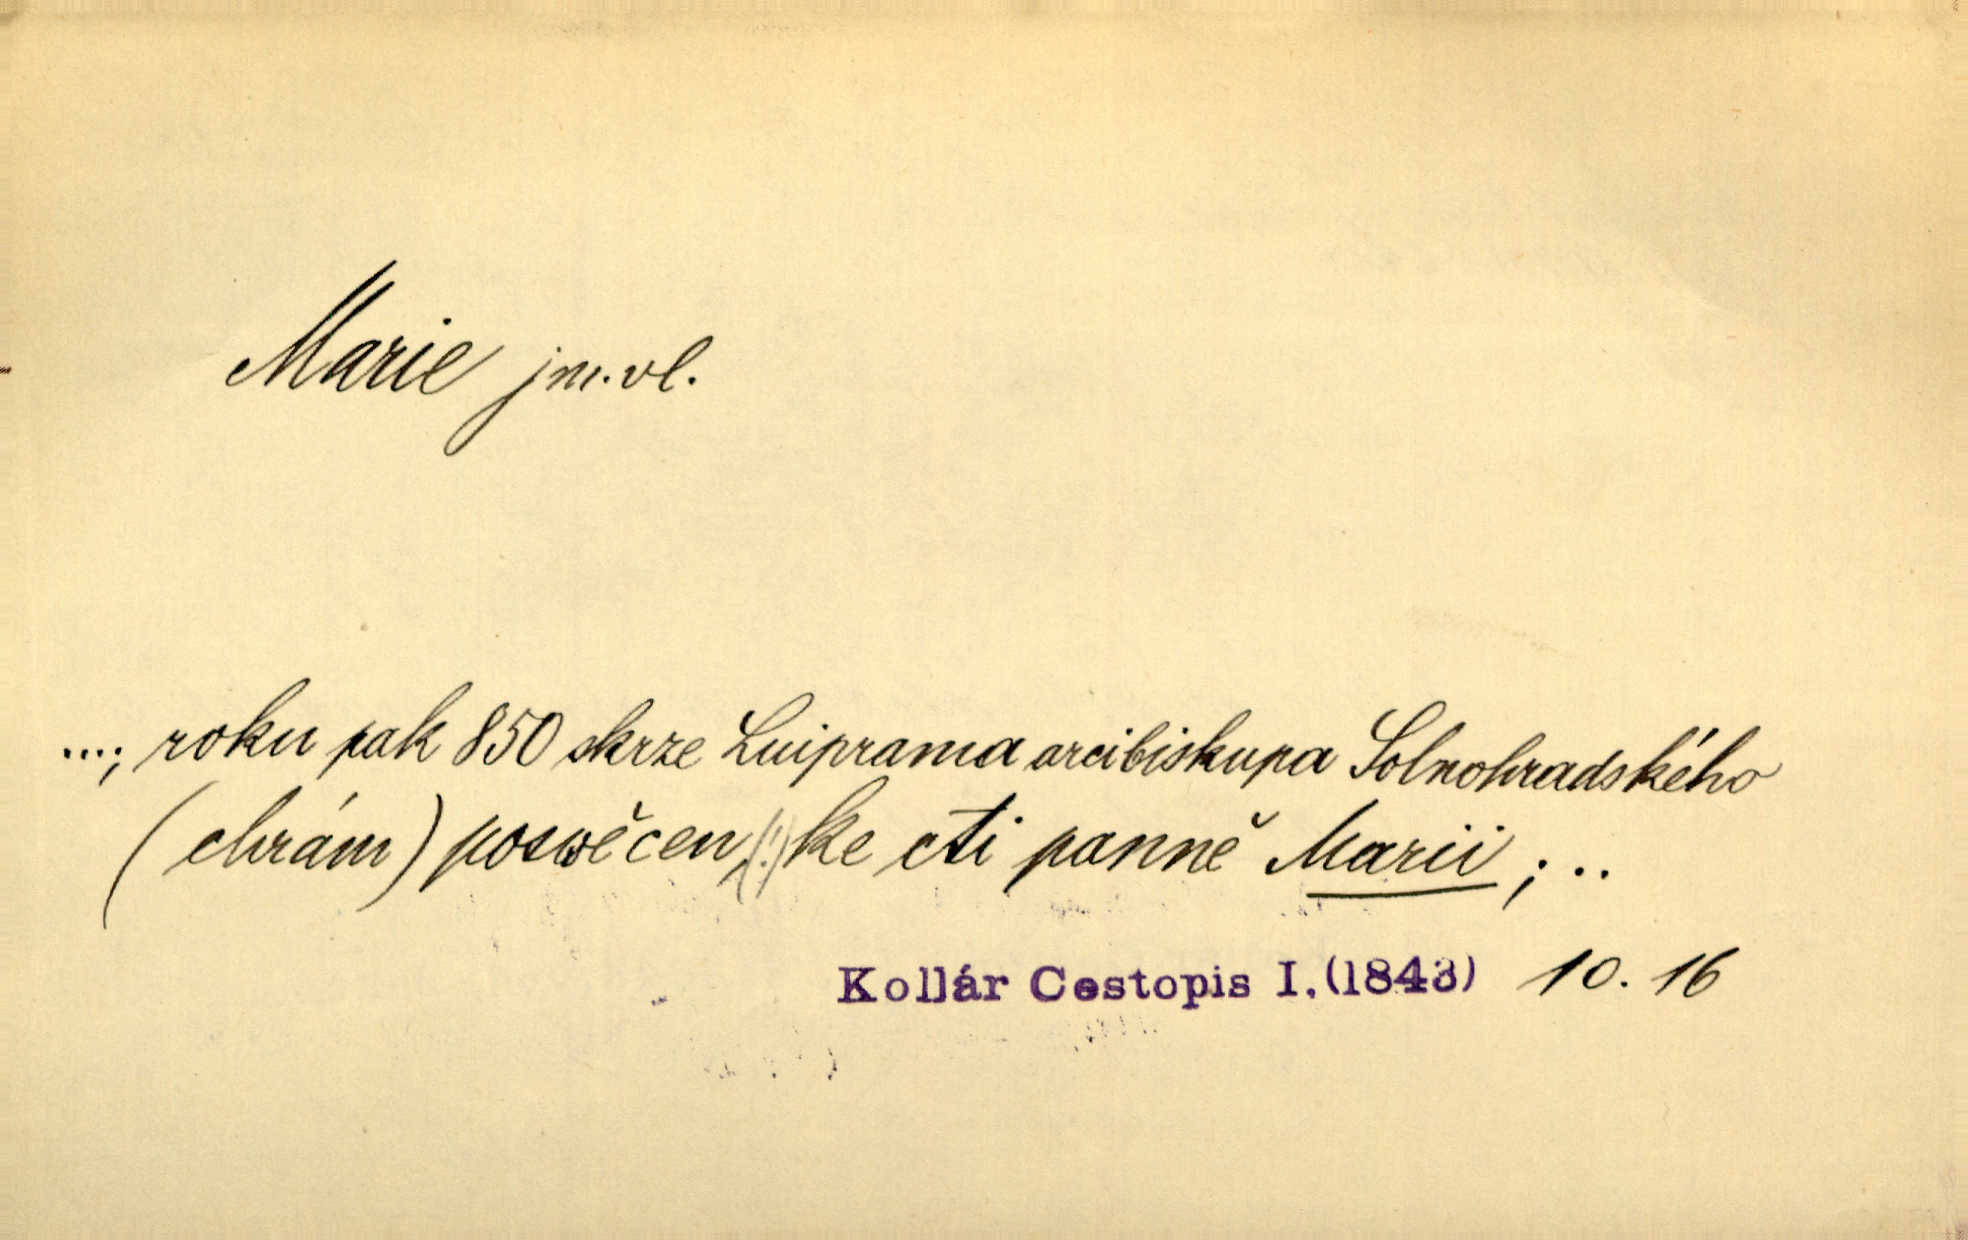 Marie jm. vl.
...; roku pak 850 skrze Luiprama arcibiskupa Solnohradského
(chrám) poswěcen, (!) ke cti panně Marii; ..
Kollár Cestopis I. (1843) 10. 16